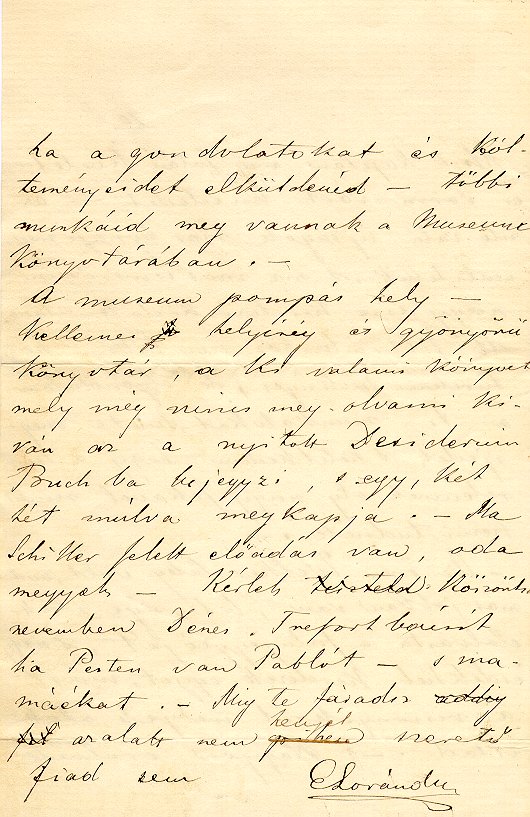 ha a gondolatokat és Köl-
teményeidet elküldenéd — többi
munkáid meg vannak a Museum
Könyvtárában. —
A museum pompás hely —
Kellemes helyiség és gyönyörű
Könyvtár, a Ki valami Könyvet
mely még nincs meg olvasni ki-
ván az a nyitott Desiderium
Buch ba bejegyzi, s egy, két
hét múlva megkapja. — Ma
Schiller felett előadás van, oda
megyek — Kérlek Köszöntsd
nevemben Dénes, Trefort bácsit
ha Pesten van Pablót — s ma-
máékat. — Mig te fáradsz addig
azalatt nem henyél szerető
fiad sem ELoránd